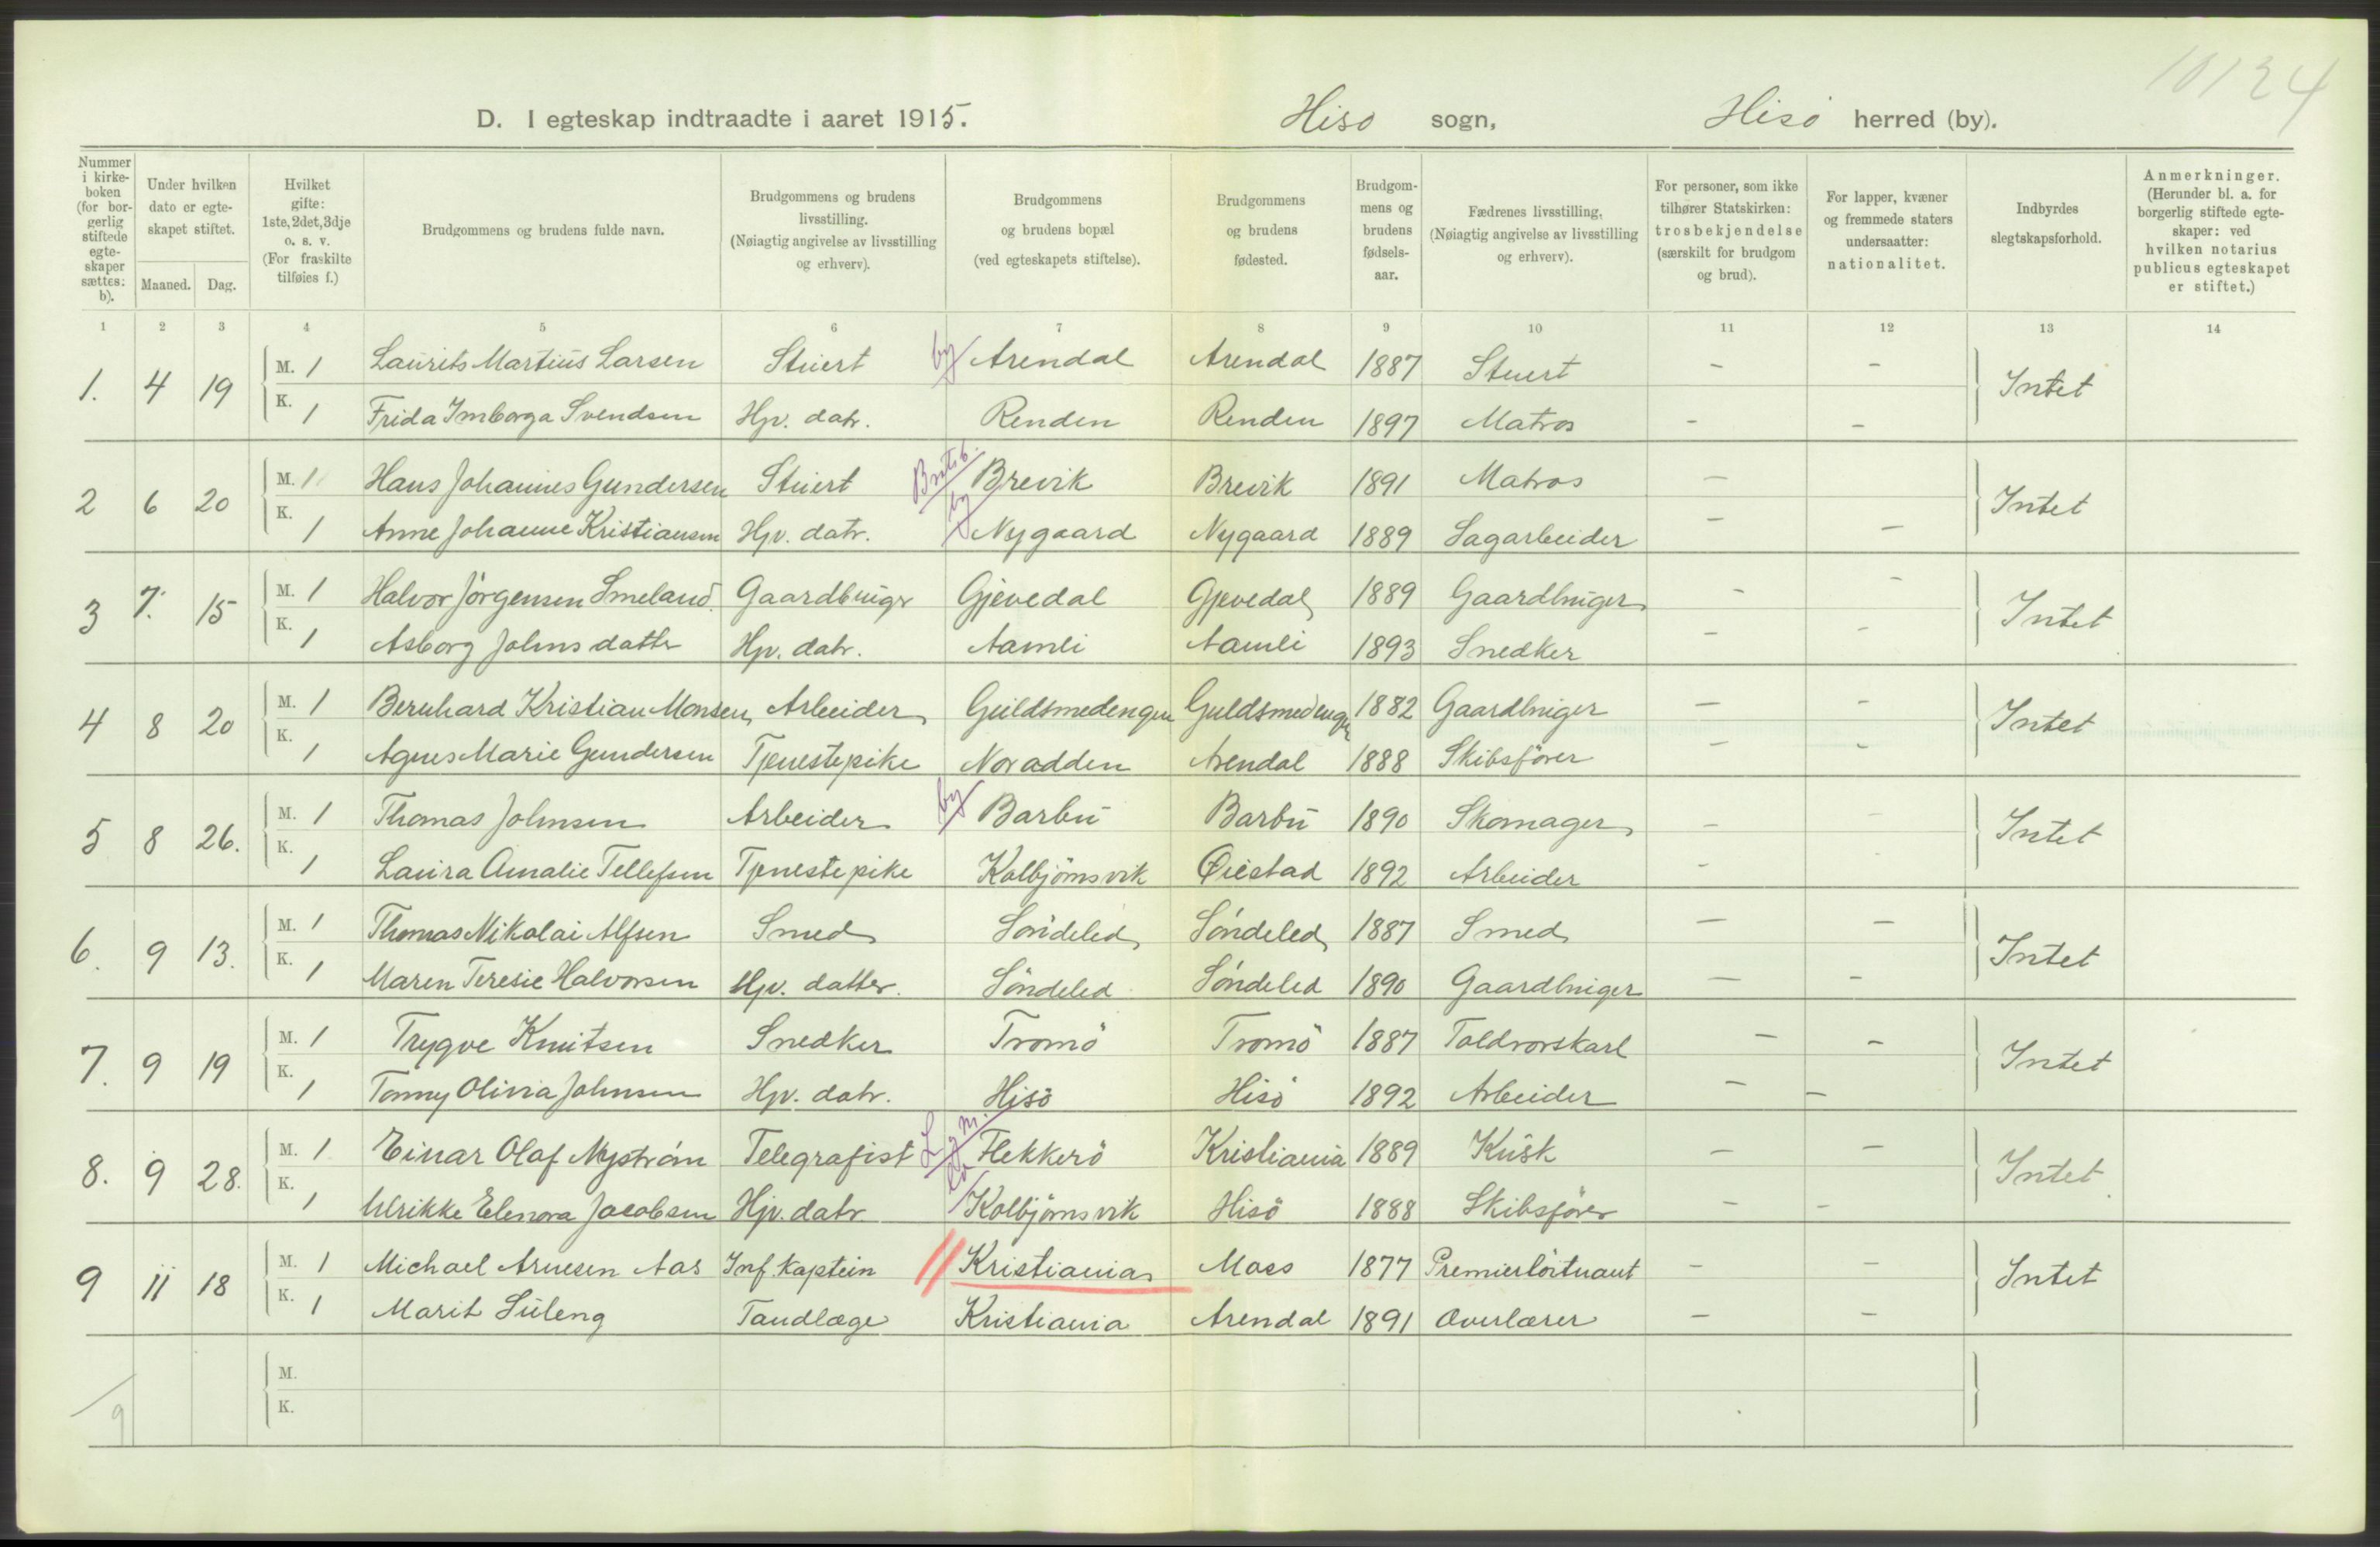 10124
D. I egteskap indtraadte i aaret 1915. Hisö sogn, Hisö herred (by).
Nummer i kirkeboken (for borgerlig stiftede egteskaper sættes: b).
Under hvilken dato er egteskapet stiftet.
Maaned. Dag.
Hvilket gifte: 1ste, 2det, 3dje o. s. v. (For fraskilte tilføies f.)
Brudgommens og brudens fulde navn.
Brudgommens og brudens livsstilling. (Nøiagtig angivelse av livsstilling og erhverv).
Brudgommens og brudens bopæl (ved egteskapets stiftelse).
Brudgommens og brudens fødested.
Brudgommens og brudens fødselsaar.
Fædrenes livsstilling, (Nøiagtig angivelse av livsstilling og erhverv).
For personer, som ikke tilhører Statskirken: trosbekjendelse (særskilt for brudgom og brud).
For lapper, kvæner og fremmede staters undersaatter: nationalitet.
Indbyrdes slegtskapsforhold.
Anmerkninger. (Herunder bl. a. for borgerlig stiftede egteskaper: ved hvilken notarius publicus egteskapet er stiftet.)
1 2 3 4 5 6 7 8 9 10 11 12 13 14
1. 4 19 M. 1 Laurits Martius Larsen Stuert by Arendal Arendal 1887 Stuert - - Intet
K. 1 Frida Imborga Svendsen Hjv. datr. Renden Renden 1897 Matros - -
2 6 20 M. 1 Hans Johannes Gundersen Stuert Bratsb. Brevik Brevik 1891 Matros - Intet
K. 1 Anne Johanne Kristiansen Hjv. datr. by Nygaard Nygaard 1889 Sagarbeider - -
3 7. 15 M. 1 Halvor Jörgensen Smeland Gaardbruger Gjevedal Gjevedal 1889 Gaardbruger - - Intet
K. 1 Asborg Johnsdatter Hjv. datr. Aamli Aamli 1893 Snedker - -
4 8 20 M. 1 Bernhard Kristian Monsen Arbeider Guldsmedengen Guldsmedengen 1882 Gaardbruger - - Intet
K. 1 Agnes Marie Gundersen Tjenestepike Norodden Arendal 1888 Skibsförer - -
5 8 26. M. 1 Thomas Johnsen Arbeider by Barbu Barbu 1890 Skomager - - Intet
K. 1 Laura Amalie Tellefsen Tjenestepike Kolbjörnsvik Øiestad 1892 Arbeider -
6. 9 13. M. 1 Thomas Nikolai Alfsen Smed Söndeled Söndeled 1887 Smed - - Intet
K. 1 Maren Teresie Halvorsen Hjv. datter. Söndeled Söndeled 1890 Gaardbruger - -
7. 9 19 M. 1 Trygve Knutsen Snedker Tromö Tromö 1887 Toldrorskarl - - Intet
K. 1 Tonny Olivia Johnsen Hjv. datr. Hisö Hisö 1892 Arbeider - -
8. 9 28. M. 1 Einar Olaf Nyström Telegrafist L. og M. Flekkerö Kristiania 1889 Kusk - - Intet
K. 1 Ulrikke Elenora Jacobsen Hjv. datr Kolbjörnsvik Hisö 1888 Skibsförer - -
9 11 18 M. 1 Michael Arnesen Aas Inf. Kaptein Kristiania Moss 1877 Premierlöitnant - - Intet
K. 1 Marit Suleng Tandlæge Kristiania Arendal 1891 Overlærer - -
9 M.
K.